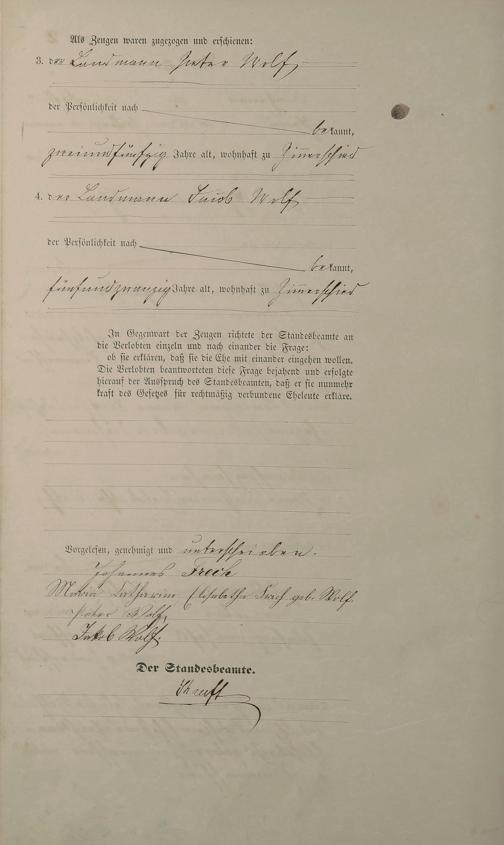 Als Zeugen waren zugezogen und erschienen:
3. der Landmann Peter Wolf
der Persönlichkeit nach
bekannt,
zweiundfünfzig Jahre alt, wohnhaft zu Zimmerschied
4. der Landmann Jacob Wolf
der Persönlichkeit nach
bekannt,
fünfundzwanzig Jahre alt, wohnhaft zu Zimmerschied
In Gegenwart der Zeugen richtete der Standesbeamte an
die Verlobten einzeln und nach einander die Frage:
ob sie erklären, daß sie die Ehe mit einander eingehen wollen.
Die Verlobten beantworteten diese Frage bejahend und erfolgte
hierauf der Ausspruch des Standesbeamten, daß er sie nunmehr
kraft des Gesetzes für rechtmäßig verbundene Eheleute erkläre.
Vorgelesen, genehmigt und unterschrieben.
Johannes
Maria Catharine Elisabetha geb. Wolf.
Peter Wolf,
Jakob Wolf.
Der Standesbeamte.